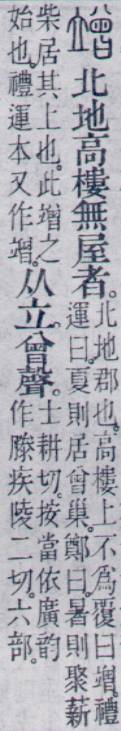 竲北地高樓無屋者。
北地郡也。高樓上不爲覆曰竲。禮
運曰。夏則居曾巢。鄭曰。暑則聚薪
柴居其上也。此竲之
始也。禮運本又作竲。
从立。曾聲。
士耕切。按當依廣韵
作滕疾陵二切。六部。